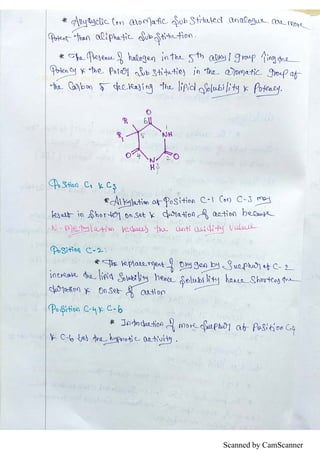 * Alicyclic (or) aromatic substituted analogue are more
Potent than aliphatic substitution.
* The Presence of halogen in the 5th alkyl group ↑ing the
Potency & the Polar substitution in the aromatic group at
the Carbon 5 decreasing the lipid Solubility & Potency.
O
R 6 NH
R1 5 1
4 3 2
O N O
H
Position C1 & C3
* Alkylation at Position C-1 (or) C-3 may
result in Shorter onset & duration of action because
N-Methylation reduces the anti acidity value
Position C-2:
* The replacement of oxygen by Sulphur at C-2
increase the lipid Solubility hence Solubility hence Shortens the
duration & onset of action
Position C-4 & C-6
* Introduction of more Sulphur at Position C4
& C-6 the hypnotic activity.
Scanned by CamScanner